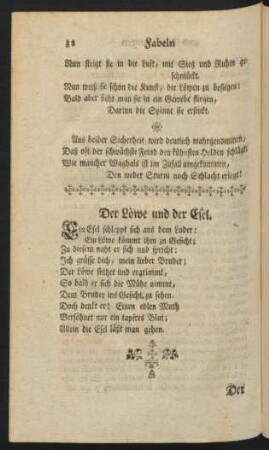 32 Fabeln
Nun steigt sie in die Luft, mit Sieg und Ruhm ge-
schmückt.
Nun weiß sie schon die Kunst, die Löwen zu besiegen:
Bald aber sieht man sie in ein Gewebe fliegen,
Darinn die Spinne sie erstickt.
Aus beider Sicherheit wird deutlich wahrgenommen,
Daß oft der schwächste Feind den kühnsten Helden schlägt.
Wie mancher Waghals ist im Zufall umgekommen,
Den weder Sturm noch Schlacht erlegt!
Der Löwe und der Esel.
Ein Esel schleppt sich aus dem Luder:
Ein Löwe kömmt ihm zu Gesicht;
Zu diesem naht er sich und spricht:
Ich grüsse dich, mein lieber Bruder;
Der Löw stehet und ergrimmt;
So bald er sich die Mühe nimmt,
Dem Bruder ins Gesicht zu sehen.
Doch denkt er: Einen edlen Muth
Versöhnet nur ein tapfres Blut;
Allein die Esel läßt man gehen.
Der